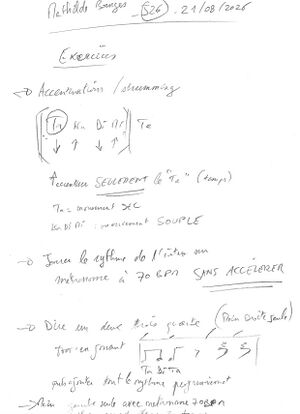 Mathilde S26 21/08/2026
Exercices
→ Accentuations / strumming
Ta Ka Di Mi Ta
↓ ↑ ↓ ↑ ↓
Accentuer SEULEMENT le "Ta" (temps)
Ta = mouvement SEC
Ka Di Mi : mouvement SOUPLE
→ Jouer le rythme de l'intro au
métronome à 70 BPM SANS ACCÉLÉRER
→ Dire un deux trois quatre (Main Droite seule)
tout en jouant
Ta Di Ta
puis ajouter tout le rythme progressivement
→ Main gauche seule avec métronome 70 BPM